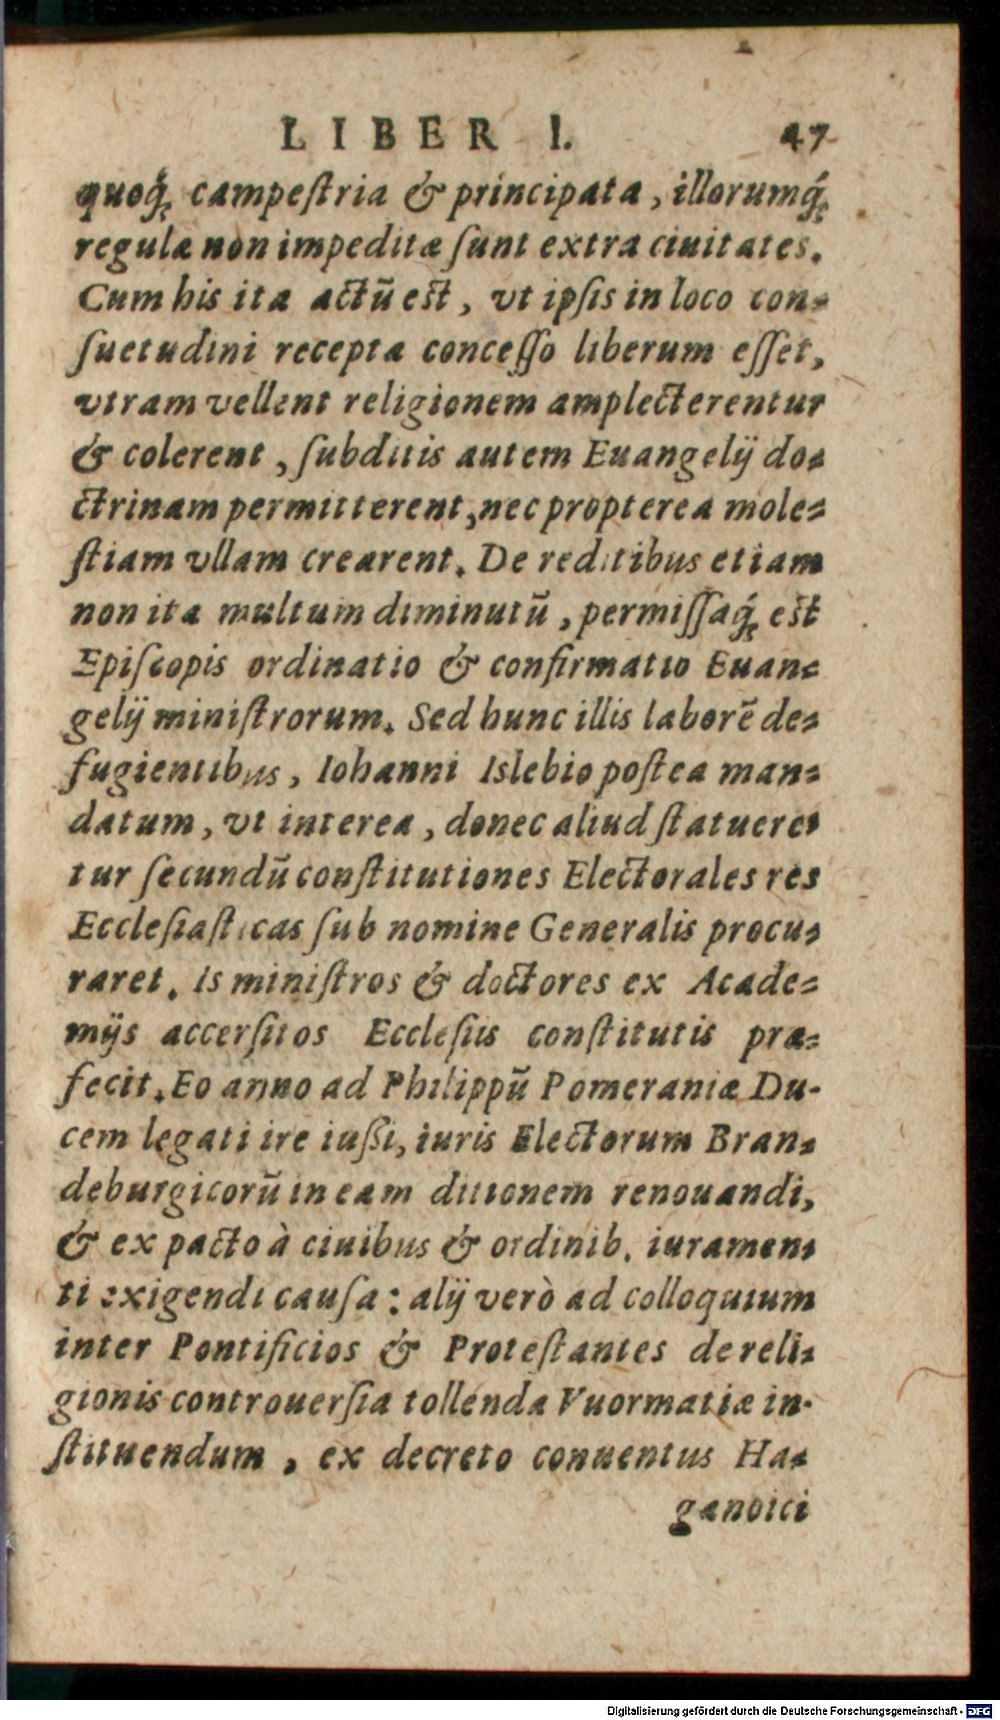 LIBER I. 47
quoq́; campeſtria & principata, illorumq́;
regulæ non impeditæ ſunt extra ciuitates.
Cum his ita actũ eſt, vt ipſis in loco con-
ſuetudini recepta conceſſo liberum eſſet,
vtram vellent religionem amplecterentur
& colerent, ſubditis autem Euangelij do-
ctrinam permitterent, nec propterea mole-
ſtiam vllam crearent. De reditibus etiam
non ita multum diminutũ, permiſſaq́; eſt
Epiſcopis ordinatio & confirmatio Euan-
gelij miniſtrorum. Sed hunc illis laborẽ de-
fugientibus, Iohanni Islebio poſtea man-
datum, vt interea, donec aliud ſtatuere-
tur ſecundũ conſtitutiones Electorales res
Eccleſiaſticas ſub nomine Generalis procu-
raret. Is miniſtros & doctores ex Acade-
mijs accerſitos Eccleſiis conſtitutis præ-
fecit. Eo anno ad Philippũ Pomeraniæ Du-
cem legati ire iuſsi, iuris Electorum Bran-
deburgicorũ in eam ditionem renouandi,
& ex pacto à ciuibus & ordinib. iuramen-
ti exigendi cauſa: alij verò ad colloquium
inter Pontificios & Proteſtantes de reli-
gionis controuerſia tollenda Vuormatiæ in-
ſtituendum, ex decreto conuentus Ha-
ganoici
Digitalisierung gefördert durch die Deutsche Forschungsgemeinschaft - DFG